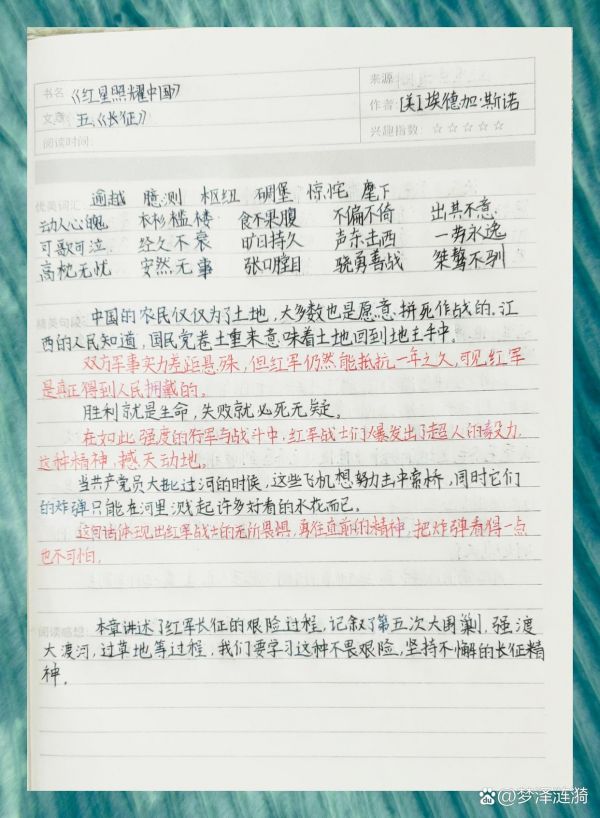 书名 《红星照耀中国》 来源
文章 五、《长征》 作者 [美]埃德加·斯诺
阅读时间: 兴趣指数: ☆☆☆☆☆
优美词汇 逾越 臆测 枢纽 碉堡 惊诧 麾下
动人心魄 衣衫褴楼 食不果腹 不偏不倚 出其不意
可歌可泣 经久不衰 旷日持久 声东击西 一劳永逸
高枕无忧 安然无事 张口瞠目 骁勇善战 桀骜不驯
精美句段 中国的农民仅仅为了土地,大多数也是愿意拼死作战的.江
西的人民知道,国民党卷土重来意味着土地回到地主手中。
双方军事实力差距悬殊,但红军仍然能抵抗一年之久,可见红军
是真正得到人民拥戴的。
胜利就是生命,失败就必死无疑。
在如此强度的行军与战斗中,红军战士们爆发出了超人的毅力,
这种精神,撼天动地。
当共产党员大批过河的时候,这些飞机想努力击中索桥,同时它们
的炸弹只能在河里溅起许多好看的水花而已。
这句话体现出红军战士的无所畏惧,勇往直前的精神,把炸弹看得一点
也不可怕。
阅读感想: 本章讲述了红军长征的艰险过程,记叙了第五次大围剿,强渡
大渡河,过草地等过程,我们要学习这种不畏艰险,坚持不懈的长征精
神。
@梦泽涟漪